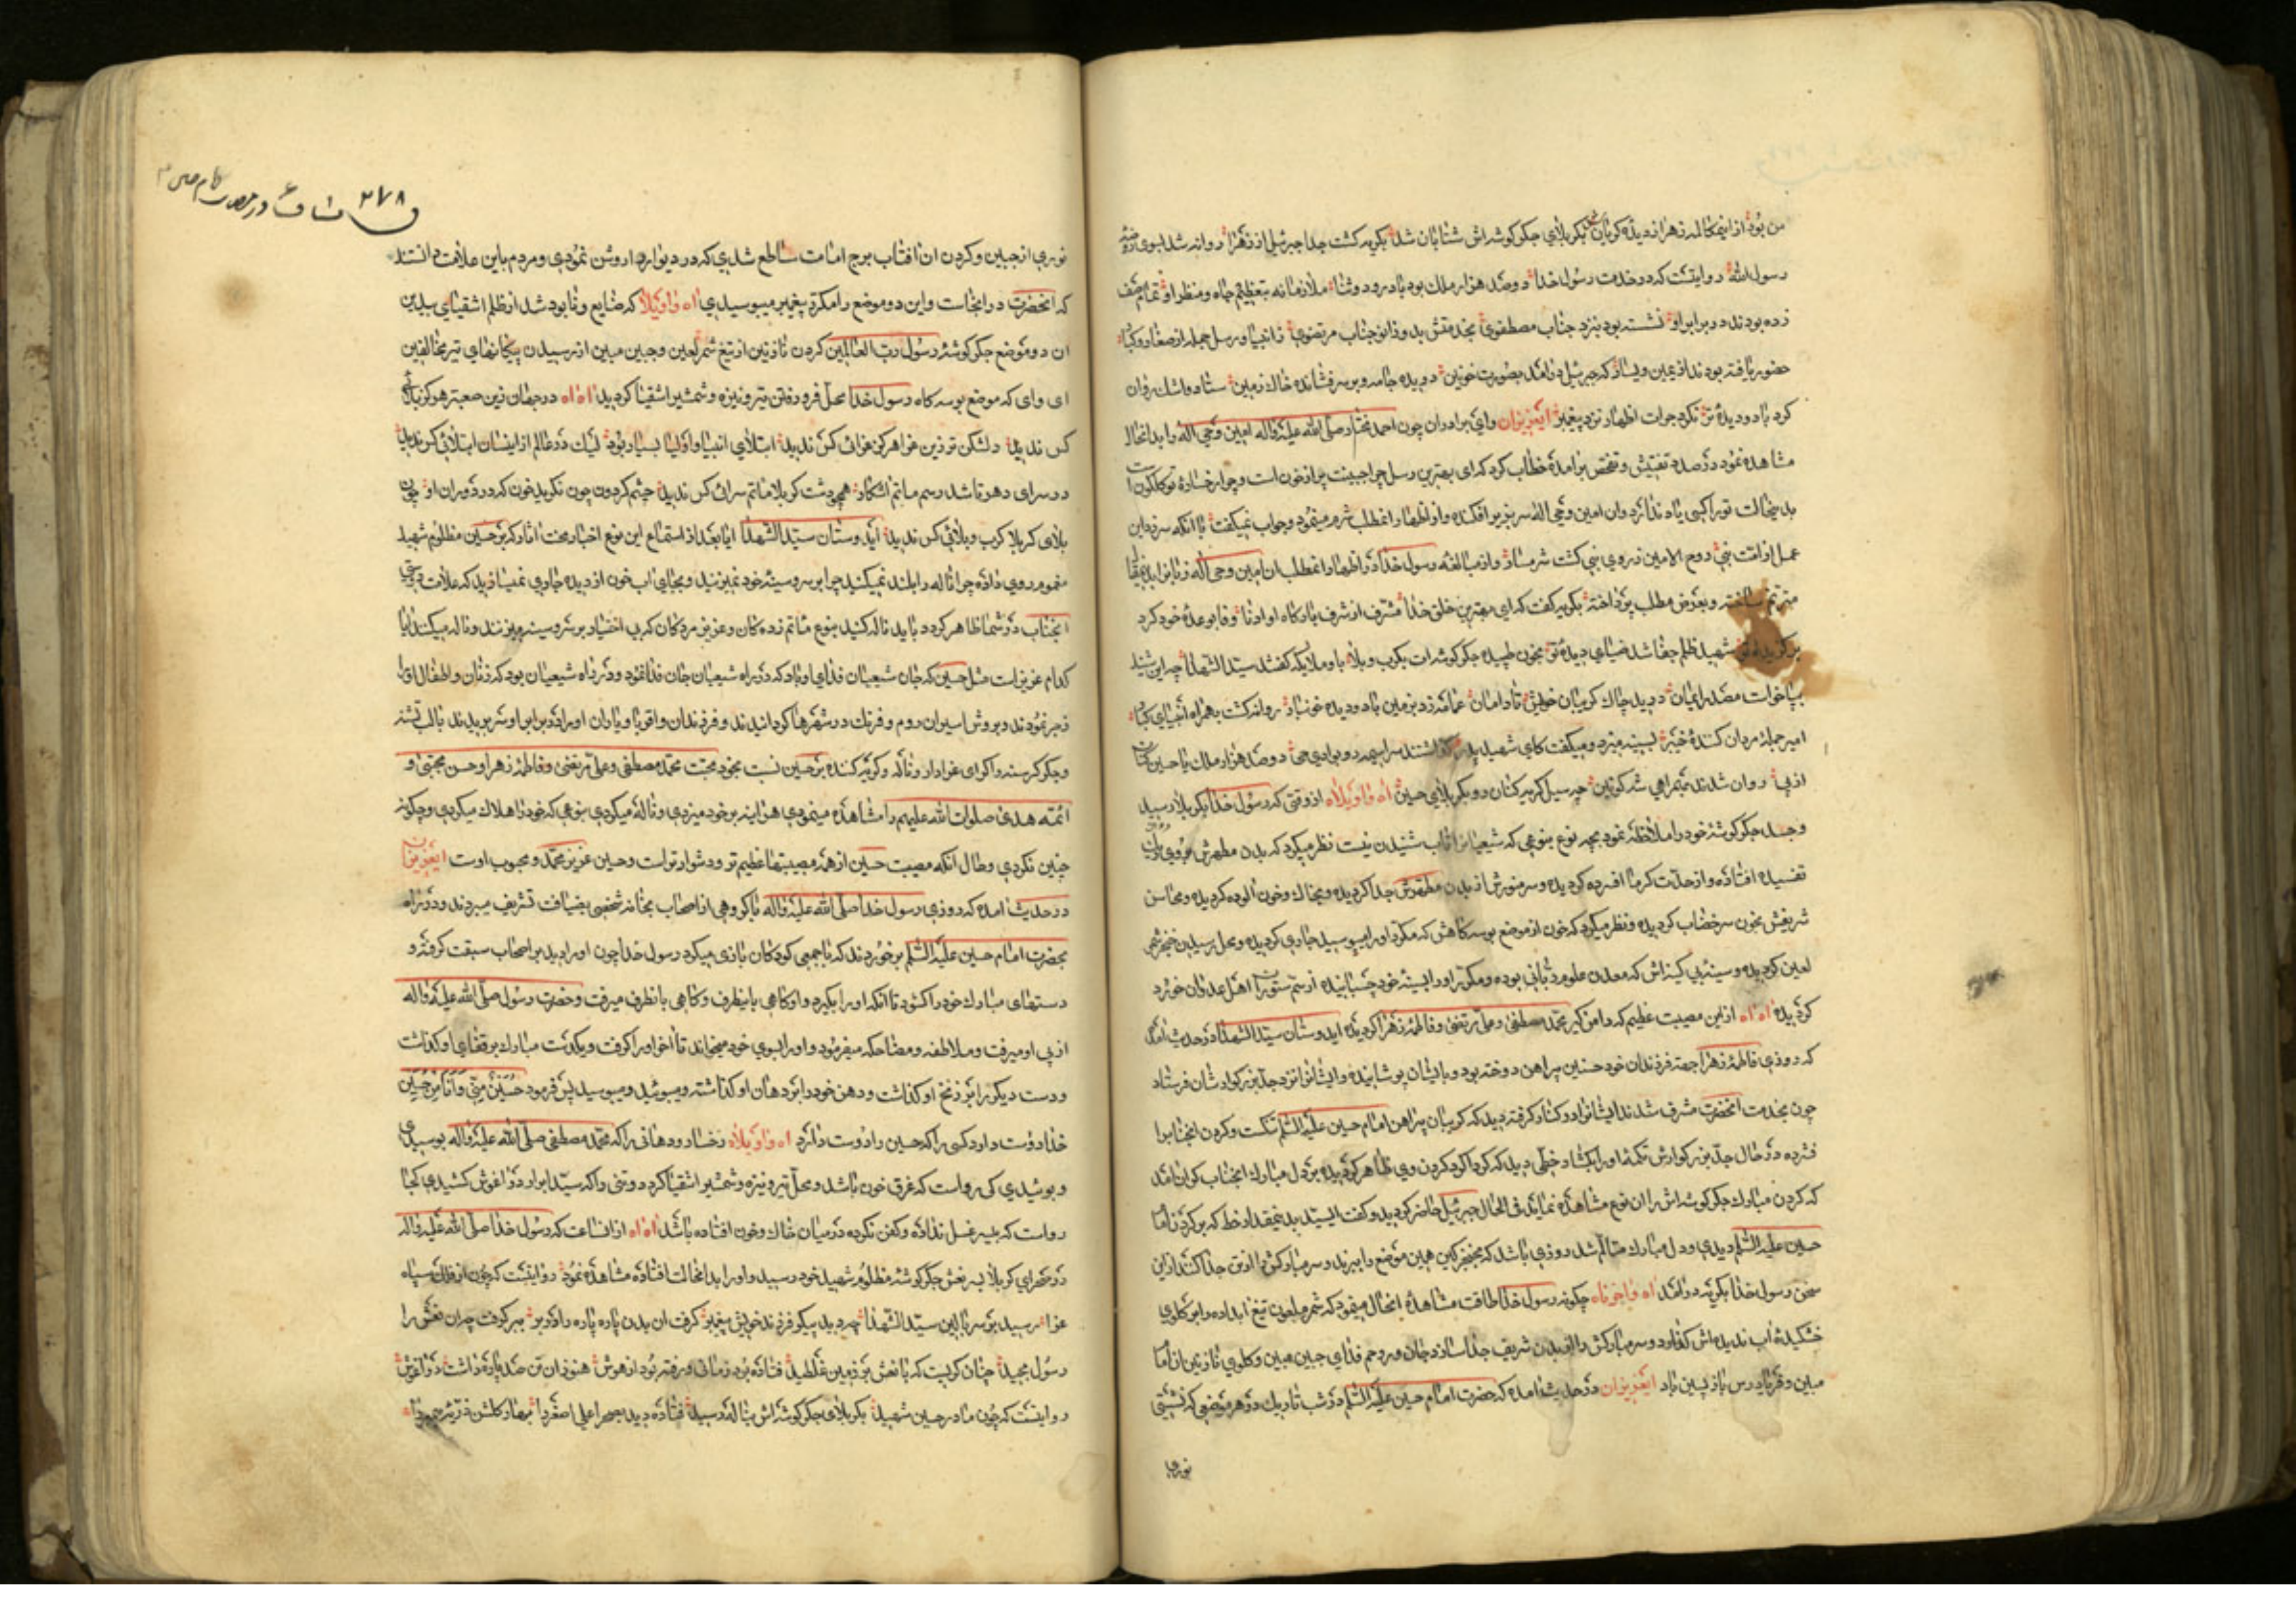 رسول الله روایتست که در خدمت رسول خدا دوصد هزار ملک بود با درود و ثنا ملازمانه بتعظیم جاه و منظر او تمام صف
زده بودند در برابر او نشسته بود بنزد جناب مصطفوی بخدمتش بدو زانو جناب مرتضوی ز انبیا و رسل جمله از صغار و کبار
حضور یافته بودند از یمین و یسار که جبرئیل درآمد بصورت خونین دریده جامه و بر سر فشانده خاک زمین ستاد و اشک روان
کرد باد و دیده تر نکرد جرات اظهار نزد پیغمبر ایعزیزان وای برادران چون احمد مختار صلی الله علیه واله امین وحی اله را بدانحال
مشاهده نمود در صدد تفتیش و تفحص برآمده خطاب کرد که ای بهترین رسل چرا جبینت پر از خون است
بدینحالت تو را کسی یاد ندارد وان امین وحی الله سر بزیر افکنده و از اظهار انمطلب شرم مینمود و جواب نمیگفت تا انکه
عمل از امت نبی روح الامین ز روی نبی گشت شرمسار و از مبالغه رسول خدا در اظهار انمطلب ان امین وحی اله زبانرا
مترنم ساخته و بعرض مطلب پرداخته بگریه گفت که ای بهترین خلق خدا مشرف از شرف بارگاه او ادنا وفا بوعده خود کرد
شهید ظلم جفا شد ضیای دیده تو بخون طپیده جگرگوشه‌ات بکرب و بلا باو ملایکه گفتند سید الشهدا
بپاخواست درید چاک گریبان خویش تا دامان عمامه زد بزمین باد و دیده خونبار روانه گشت بهمراه انبیای کبار
امیر جمله مردان کننده خیبر بسینه میزد و میگفت کای شهید پدر
از پی روان شدند بهمراهی شه کونین چه سیل گریه کنان رو بکربلای حسین اه واویلاه از وقتی که رسول خدا بکربلا رسید
وجسد جگرگوشه خود را ملاحظه نمود بچه نوع بنوعی که شیعیانرا تاب شنیدن نیست نظر میکرد که بدن مطهرش
تفسیده افتاده و از حدت گرما افسرده گردیده و سر منورش از بدن مطهرش جدا گردیده و بخاک و خون الوده گردیده و محاسن
شریفش بخون سر خضاب گردیده و نظر میکرد که خون از موضع بوسه کاهش که مکرر او را میبوسید جاری گردیده و محل بریدن خنجر شمر
لعین گردیده و سینه بی کینه‌اش که معدن علوم ربانی بوده و مکرر او را بسینه خود چسبانیده از سم ستوران اهل عدوان خورد
گردیده اه اه ازین مصیبت عظیم که دامن گیر محمد مصطفی و علی مرتضی و فاطمه زهرا گردیده ایدوستان سید الشهدا در حدیث امده
که روزی فاطمه زهرا جهة فرزندان خود حسنین پیراهن دوخته بود و بایشان پوشانیده وایشانرا نزد جد بزرگوارشان فرستاد
چون بخدمت انحضرت مشرف شدند ایشانرا در کنار گرفته دید که گریبان پیراهن امام حسین علیه السلم تنکست و گردن انجنابرا
فشرده در حال جد بزرگوارش تکمه او را بگشاد خطی دید که گرداگرد گردن وی ظاهر گردیده بر دل مبارک انجناب گران امد
که گردن مبارک جگرگوشه‌اش را ان نوع مشاهده نماید فی الحال جبرئیل حاضر گردید و گفت ایسید بدینمقدار خط که بر گردن
حسین علیه السلم دیدی و دل مبارک متالم شد روزی باشد که بخنجر کین همین موضع را ببرند و سر مبارکش را از تن جدا کنند ازین
سخن رسول خدا بگریه درامد اه واحزناه چگونه رسول خدا طاقت مشاهده انحال میفرمود که شمر ملعون تیغ ابداده را بر گلوی
خشکیده اب ندیده‌اش گذارد و سر مبارکش را از بدن شریف جدا سازد
ایعزیزان در حدیث امده که حضرت امام حسین علیه السلم در شب تاریک در هر موضعی که نشستی
نوری
۲۷۸
نوری از جبین و گردن ان افتاب برج امامت ساطع شدی که در و دیوار را روشن نمودی و مردم باین علامت دانستند
که انحضرت در انجاست و این دو موضع را مکرر پیغمبر میبوسیدی اه واویلا که ضایع و نابود شد از ظلم اشقیای بیدین
ان دو موضع جگرگوشه رسول رب العالمین گردن نازنین از تیغ شمر لعین و جبین مبین از رسیدن پیکانهای تیر مخالفین
ای وای که موضع بوسه کاه رسول خدا محل فرو رفتن تیر و نیزه و شمشیر اشقیا گردید اه اه در جهان زین صعبتر هرگز بلائی
کس ندیده دلشکن تر زین عزا هرگز عزائی کس ندیده ابتلای انبیا و اولیا بسیار بود لیک در عالم از ایشان ابتلائی کس ندیده
در سرای دهر تا شد رسم ماتم اشکار همچو دشت کربلا ماتم سرائی کس ندیده چشم گردون چون نگرید خون که در دوران او
بلای کربلا کرب و بلائی کس ندیده ایدوستان سید الشهدا ایا بعد از استماع این نوع اخبار محنت اثار که بر حسین مظلوم شهید
مغموم روی داده چرا ناله را بلند نمیکنید چرا بر سر و سینه خود نمیزنید و بجای اب خون از دیده جاری نمیسازید که علامت دوستی
انجناب در شما ظاهر گردد باید ناله کنید بنوع ماتم زده‌کان و عزیز مرده‌کان که بی اختیار بر سر و سینه میزنند و ناله میکنند ایا
کدام عزیز است مثل حسین که جان شیعیان فدای او باد که در راه شیعیان جان فدا نمود و در راه شیعیان بود که زنان و اطفال او را
زجر نمودند و بروش اسیران روم و فرنک در شهرها گردانیدند و فرزندان و اقربا و یاران او را در برابر او سر بریدند با لب تشنه
و جگر گرسنه و اگر ای عزادار و ناله و گریه کننده بر حسین نسبت بخود محبت محمد مصطفی و علی مرتضی و فاطمه زهرا و حسن مجتبی و
ائمه هدی صلوات الله علیهم را مشاهده مینمودی هر اینه بر خود میزدی و ناله میکردی بنوعی که خود را هلاک میکردی و چگونه
چنین نکردی و حال انکه مصیبت حسین از همه مصیبتها عظیم تر و دشوارتر است و حسین عزیز محمد و محبوب اوست ایعزیزان
در حدیث امده که روزی رسول خدا صلی الله علیه واله با گروهی از اصحاب بخانه شخصی بضیافت تشریف میبردند و در راه
بحضرت امام حسین علیه السلم برخوردند که با جمعی کودکان بازی میکرد رسول خدا چون او را دید بر اصحاب سبقت گرفته و
دستهای مبارک خود را گشود تا انکه او را بگیرد و او گاهی باینطرف و گاهی بانطرف میرفت و حضرت رسول صلی الله علیه واله
از پی او میرفت و ملاطفه و مضاحکه میفرمود و او را بسوی خود میخواند تا اخر او را گرفت و یکدست مبارک بر قفای او گذاشت
و دست دیگر را بر زنخ او گذاشت و دهن خود را بر دهان او گذاشته و میبوئید و میبوسید پس فرمود حسین منی وانا من حسین
خدا دوست دارد کسی را که حسین را دوست دارد اه واویلاه رخسار و دهانی را که محمد مصطفی صلی الله علیه واله بوسیدی
و بوئیدی کی رواست که غرق خون باشد و محل تیر و نیزه و شمشیر اشقیا گردد و تنی را که سید ابرار در اغوش کشیدی کجا
رواست که بی غسل نداده و کفن نکرده در میان خاک و خون افتاده باشد اه اه از انساعت که رسول خدا صلی الله علیه واله
در صحرای کربلا بسر نعش جگرگوشه مظلوم شهید خود رسید و او را بدانحالت افتاده مشاهده نمود روایتست که چون
عزا رسید بر سر بالین سید الشهدا چه دید پیکر فرزند خویش پیغمبر گرفت ان بدن پاره پاره را در بر
رسول مجید چنان گریست که با نعش بر زمین غلطید فتاده بود زمانی و رفته بود از هوش هنوز ان تن صد پاره داشت در اغوش
روایتست که چون مادر حسین شهید بکربلای جگرگوشه‌اش بناله رسید فتاده دید بصحرا علی اصغر را